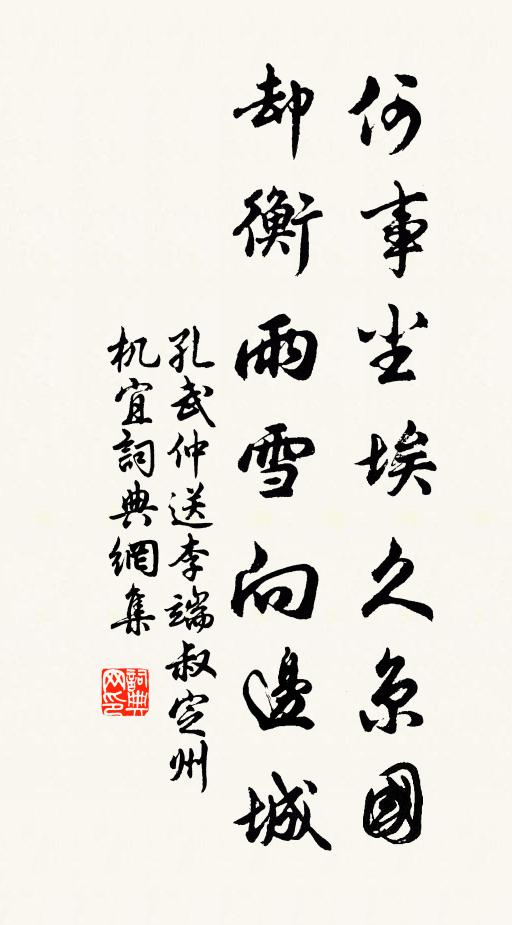 何事尘埃久京國
却衡雨雪向邊城
孔武仲送李端叔定州
机宜詞典網集
詞典网印